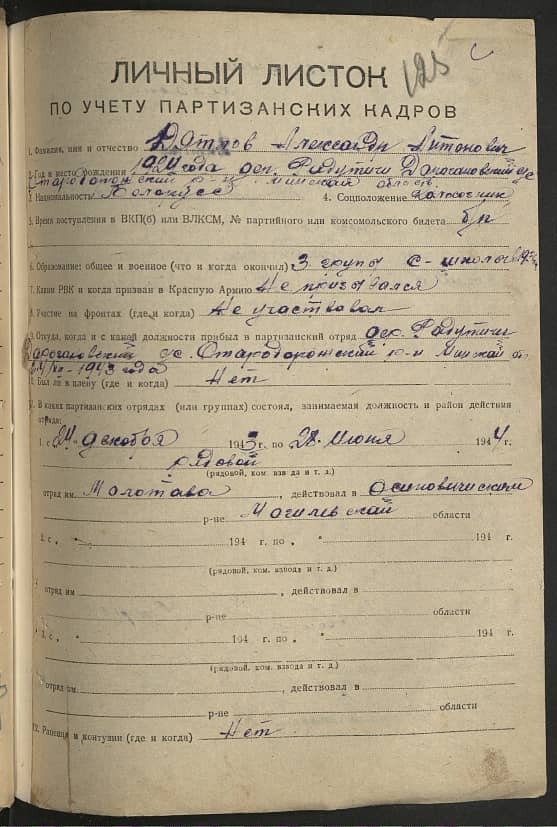 125
ЛИЧНЫЙ ЛИСТОК
ПО УЧЕТУ ПАРТИЗАНСКИХ КАДРОВ
1. Фамилия, имя и отчество Дятлов Александр Антонович
2. Год и место рождения 1924 года дер. Радутичи с/с
Стародорожский р-н Минской область
3. Национальность Белорусс 4. Соцположение
5. Время поступления в ВКП(б) или ВЛКСМ, № партийного или комсомольского билета б/п
6. Образование: общее и военное (что и когда окончил) 3 групы с-школы
7. Каким РВК и когда призван в Красную Армию Не призывался
8. Участие на фронтах (где и когда) Не участвовал
9. Откуда, когда и с какой должности прибыл в партизанский отряд дер. Радутичи
с/с. Стародорожский р-н Минской
1943 года
10. Был ли в плену (где и когда) Нет
11. В каких партизанских отрядах (или группах) состоял, занимаемая должность и район действия
отряда:
1. с „24" декабря 1943 г. по „28" Июня 1944 г.
рядовой
(рядовой, ком. взвода и т. д.)
отряд им. Молотава, действовал в Осиповичским
р-не Могилевскай области
2. с „ " 194 г. по „ " 194 г.
(рядовой, ком. взвода и т. д.)
отряд им , действовал в
р-не области
3. с „ " 194 г. по „ " 194 г.
(рядовой, ком. взвода и т. д.)
отряд им. , действовал в
р-не области
12. Ранения и контузии (где и когда) Нет